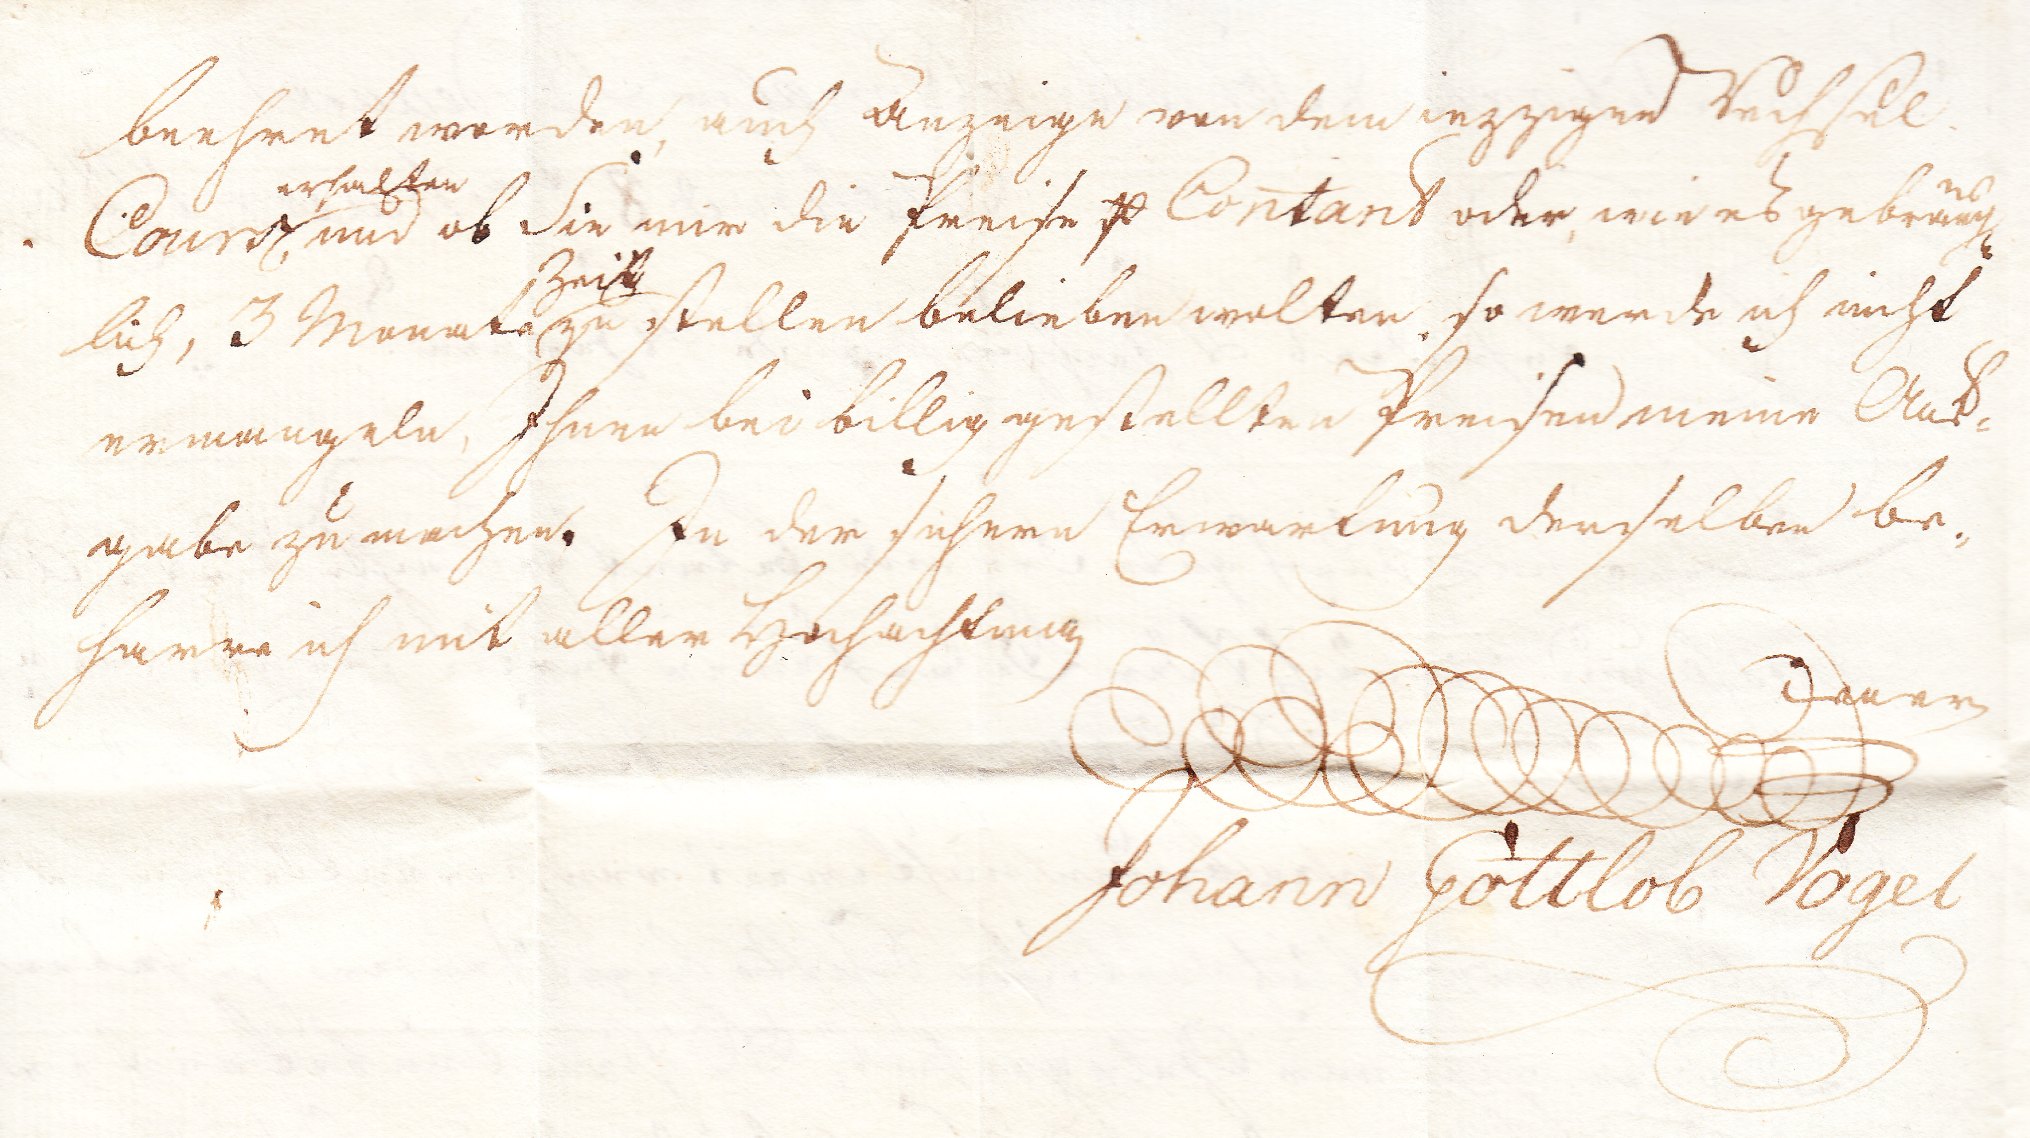 beehret werden, auch Anzeige von dem iezzigen Wechsel-
Cours, erhalten und ob Sie mir die Preise pr Contant oder, wie es gebräuch-
lich, 3 Monate Zeit zu stellen belieben wolten, so werde ich nicht
ermangeln, Ihnen bei billig gestellten Preisen meine Auf=
gabe zu machen. In der sichern Erwartung derselben be-
harre ich mit aller Hochachtung
Johann Gottlob Vogel